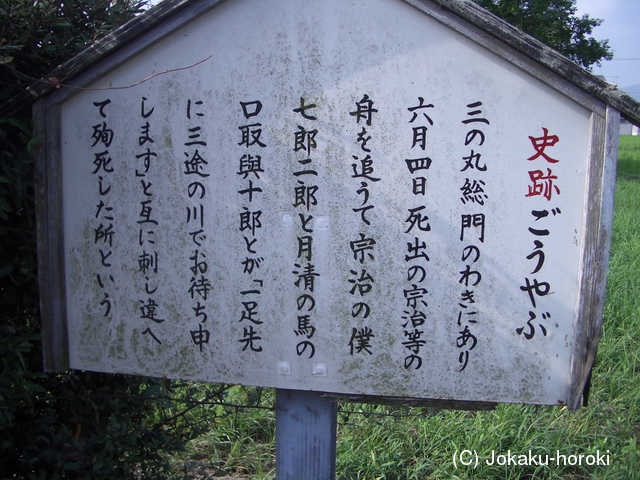 史跡ごうやぶ
三の丸総門のわきにあり
六月四日死出の宗治等の
舟を追うて宗治の僕
七郎二郎と月清の馬の
口取與十郎とが「一足先
に三途の川でお待ち申
します」と互に刺し違へ
て殉死した所という
(C) Jokaku-horoki